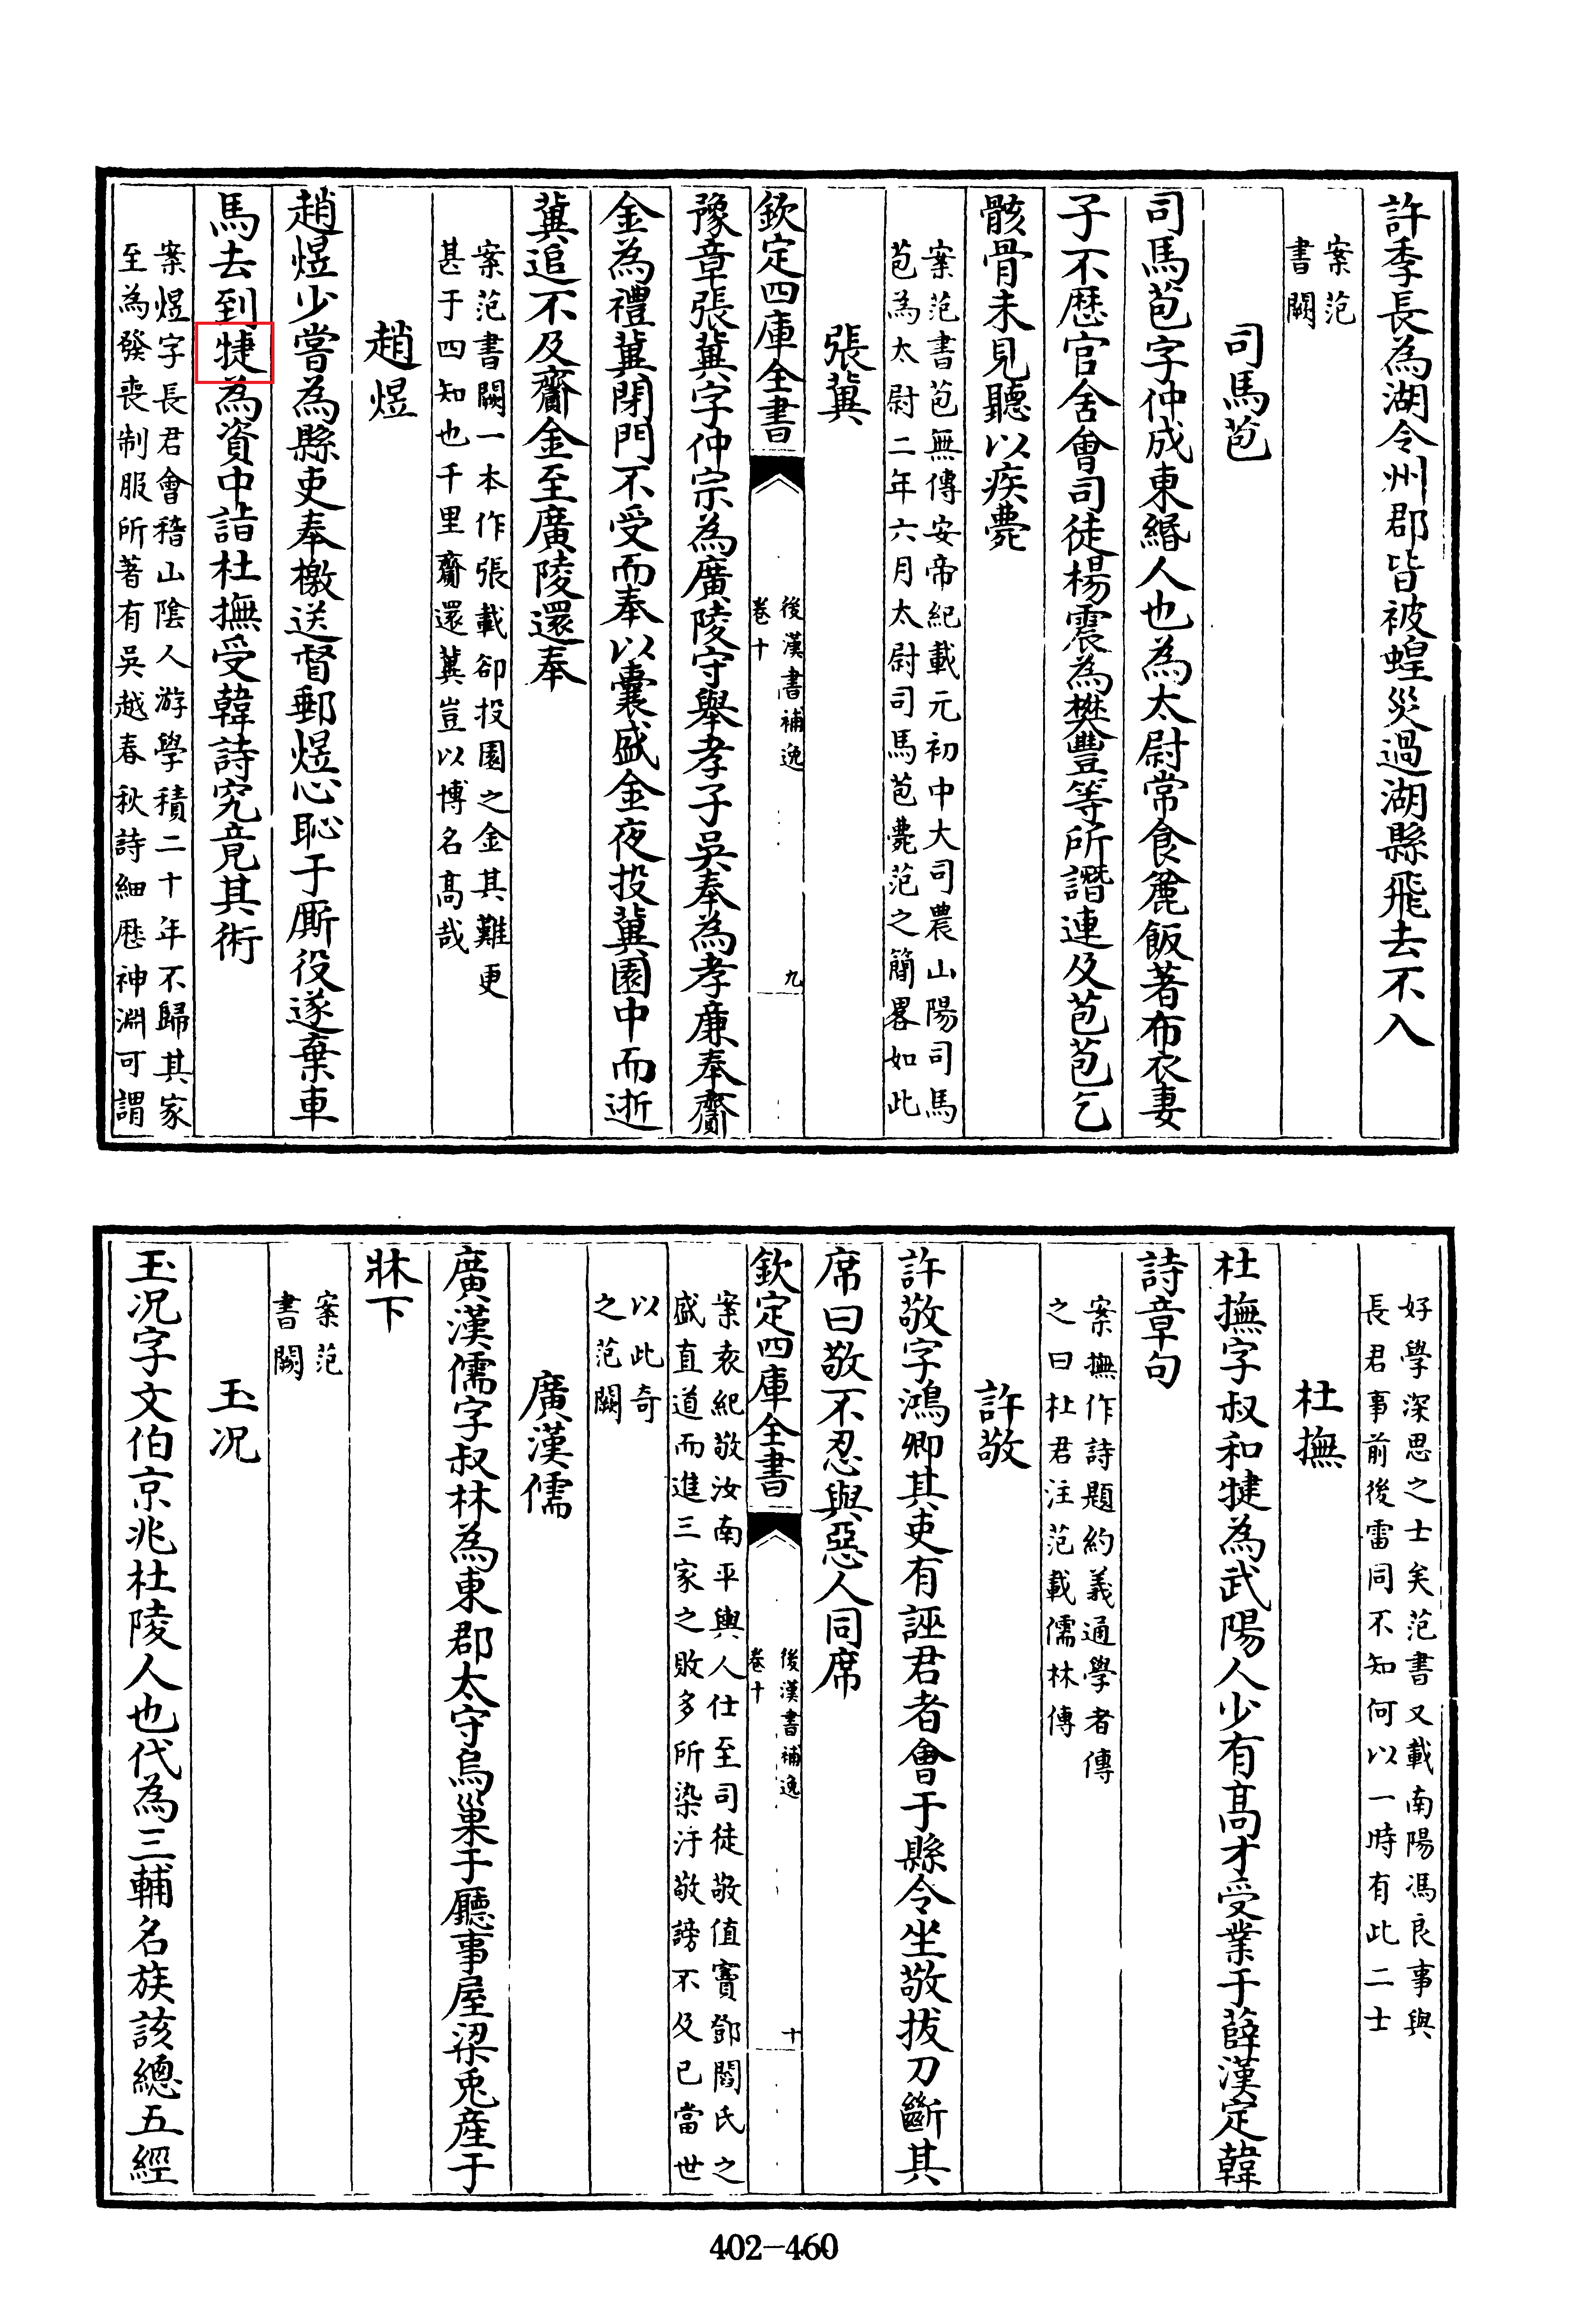 許季長為湖令州郡皆被蝗災過湖縣飛去不入
案范
書闕
司馬苞
司馬苞字仲成東緡人也為太尉常食麄飯著布衣妻
子不歴官舍會司徒楊震為樊豐等所譖連及苞苞乞
骸骨未見聽以疾薨
案范書苞無傳安帝紀載元初中大司農山陽司馬
苞為太尉二年六月太尉司馬苞薨范之簡畧如此
張冀
欽定四庫全書
後漢書補逸
卷十
九
豫章張冀字仲宗為廣陵守舉孝子吳奉為孝廉奉齎
金為禮冀閉門不受而奉以囊盛金夜投冀園中而逝
冀追不及齎金至廣陵還奉
案范書闕一本作張載卻投園之金其難更
甚于四知也千里齎還冀豈以博名髙哉
趙煜
趙煜少嘗為縣吏奉檄送督郵煜心恥于厮役遂棄車
馬去到犍為資中詣杜撫受韓詩究竟其術
案煜字長君會稽山陰人游學積二十年不歸其家
至為發喪制服所著有吳越春秋詩細歴神淵可謂
好學深思之士矣范書又載南陽馮良事與
長君事前後雷同不知何以一時有此二士
杜撫
杜撫字叔和犍為武陽人少有髙才受業于薛漢定韓
詩章句
案撫作詩題約義通學者傳
之曰杜君注范載儒林傳
許敬
許敬字鴻卿其吏有誣君者會于縣令坐敬拔刀斷其
席曰敬不忍與惡人同席
欽定四庫全書
後漢書補逸
卷十
十
案袁紀敬汝南平輿人仕至司徒敬值竇鄧閻氏之
盛直道而進三家之敗多所染汙敬謗不及已當世
以此奇
之范闕
廣漢儒
廣漢儒字叔林為東郡太守烏巢于廳事屋梁兎産于
牀下
案范
書闕
玉况
玉况字文伯京兆杜陵人也代為三輔名族該總五經
402-460